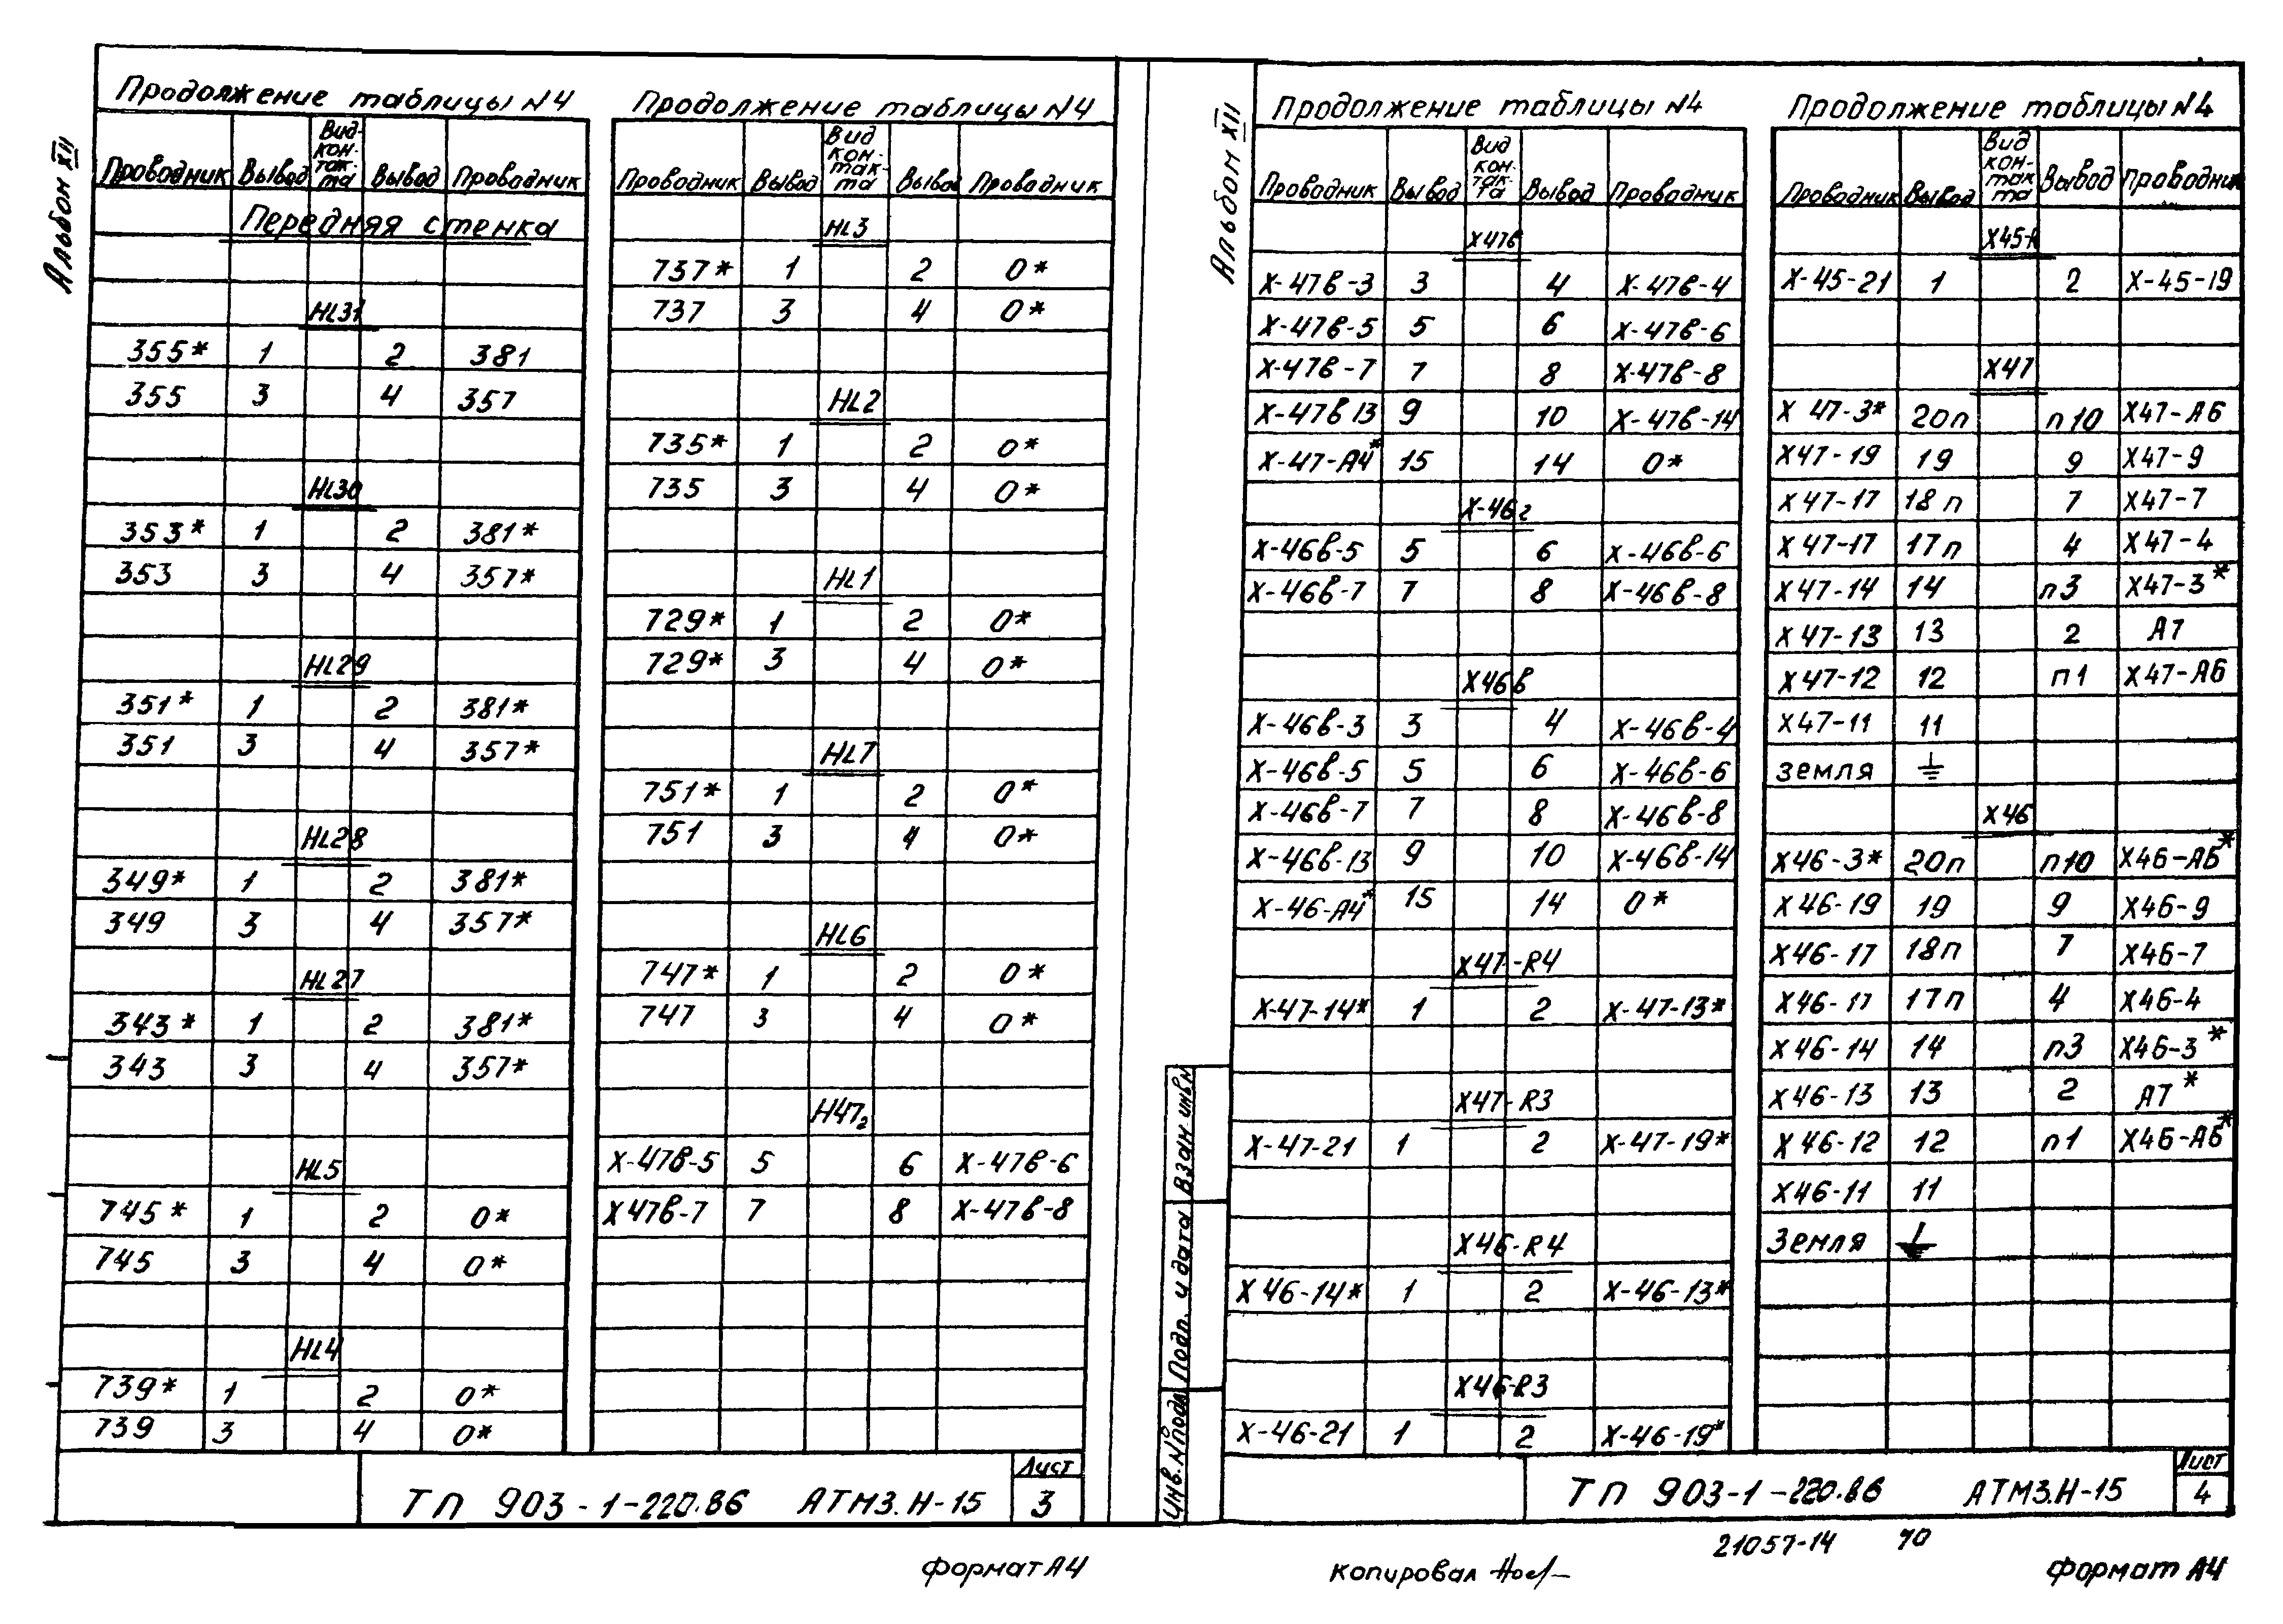 Альбом XII
Продолжение таблицы N4
Проводник Вывод Вид кон- так- та Вывод Проводник
Передняя стенка
HL31
355* 1 2 381
355 3 4 357
HL30
353* 1 2 381*
353 3 4 357*
HL29
351* 1 2 381*
351 3 4 357*
HL28
349* 1 2 381*
349 3 4 357*
HL27
343* 1 2 381*
343 3 4 357*
HL5
745* 1 2 0*
745 3 4 0*
HL4
739* 1 2 0*
739 3 4 0*
Продолжение таблицы N4
Проводник Вывод Вид кон- так- та Вывод Проводник
HL3
737* 1 2 0*
737 3 4 0*
HL2
735* 1 2 0*
735 3 4 0*
HL1
729* 1 2 0*
729* 3 4 0*
HL7
751* 1 2 0*
751 3 4 0*
HL6
747* 1 2 0*
747 3 4 0*
H47г
X-47в-5 5 6 X-47в-6
X47в-7 7 8 X-47в-8
ТП 903-1-220.86 АТМ3.Н-15
Лист
3
формат А4
Альбом XII
Продолжение таблицы N4
Проводник Вывод Вид кон- так- та Вывод Проводник
X47в
X-47в-3 3 4 X-47в-4
X-47в-5 5 6 X-47в-6
X-47в-7 7 8 X-47в-8
X-47в 13 9 10 X-47в-14
X-47-А4* 15 14 0*
X-46г
X-46в-5 5 6 X-46в-6
X-46в-7 7 8 X-46в-8
X46в
X-46в-3 3 4 X-46в-4
X-46в-5 5 6 X-46в-6
X-46в-7 7 8 X-46в-8
X-46в-13 9 10 X-46в-14
X-46-А4* 15 14 0*
X47-R4
X-47-14* 1 2 X-47-13*
X47-R3
X-47-21 1 2 X-47-19*
X46-R4
X46-14* 1 2 X-46-13*
X46-R3
X-46-21 1 2 X-46-19*
Продолжение таблицы N4
Проводник Вывод Вид кон- так та Вывод Проводник
X-45-21 1 2 X-45-19
X47
X 47-3* 20п п10 X47-А6
X47-19 19 9 X47-9
X47-17 18п 7 X47-7
X47-17 17п 4 X47-4
X47-14 14 п3 X47-3*
X47-13 13 2 А7
X47-12 12 п1 X47-А6
X47-11 11
земля ⏚
X46
X46-3* 20п п10 X46-А6*
X46-19 19 9 X46-9
X46-17 18п 7 X46-7
X46-17 17п 4 X46-4
X46-14 14 п3 X46-3*
X46-13 13 2 А7*
X46-12 12 п1 X46-А6*
X46-11 11
Земля ⏚
Взам. инв.N
Подп. и дата
Инв.N°подл.
ТП 903-1-220.86 АТМ3.Н-15
Лист
4
21057-14 70
копировал
формат А4